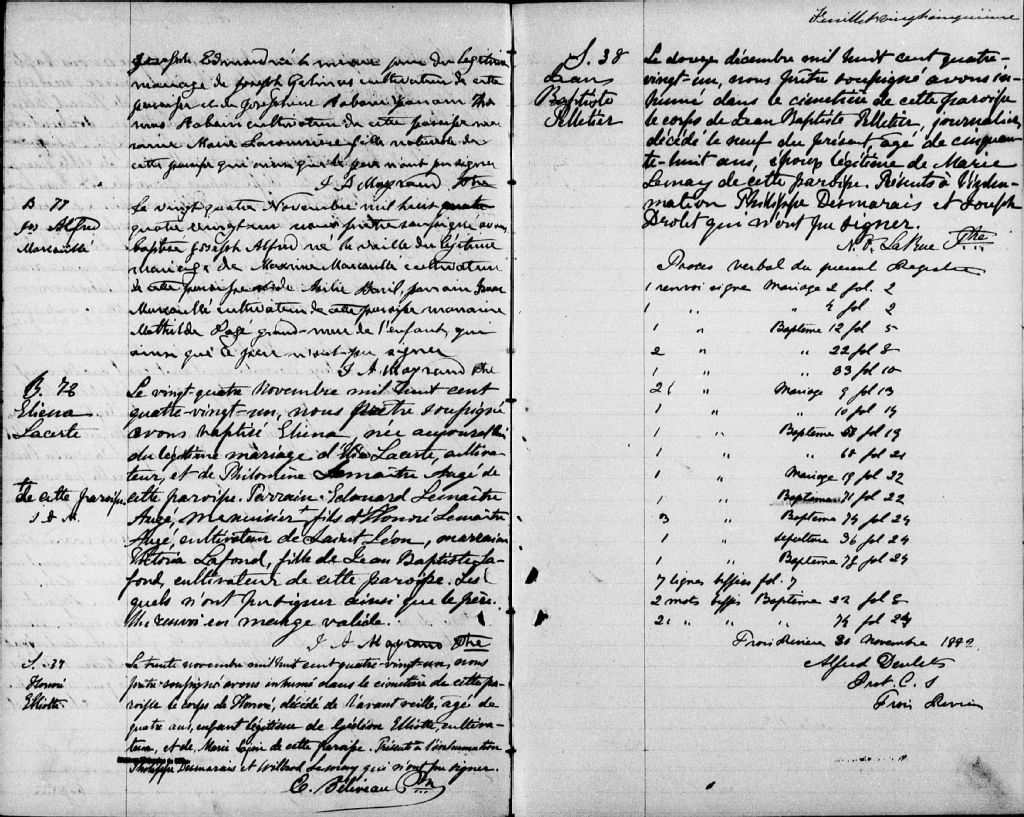 Joseph Edmond né le même jour du légitime
mariage de Joseph Gelinas cultivateur de cette
paroisse et de Josephine Rabouin parrain Tho
mas cultivateur de cette paroisse mar
raine Marie fille naturelle de
cette paroisse qui ainsi que le père n'ont pu signer
J A Mayrand Ptre
B 77
Jos Alfred
Marcouillé
Le vingt quatre Novembre mil huit quatre
quatre vingt un nous prêtre soussigné avons
baptisé Joseph Alfred né la veille du légitime
mariage de Maxime Marcouillé cultivateur
de cette paroisse et de Emilie Baril, parrain
Marcouillé cultivateur de cette paroisse marraine
Mathilde Pagé grand-mère de l'enfant qui
ainsi que le père n'ont pu signer
J A Mayrand Ptre
B. 78
Eliena
Lacerte
Le vingt-quatre Novembre mil huit cent
quatre-vingt-un, nous prêtre soussigné
avons baptisé Eliena, née aujourd'hui
du légitime mariage d' Lacerte, cultiva-
teur, et de Philomène Lemaître Augé de
cette paroisse. Parrain Edouard Lemaître
Augé, menuisier + fils d'Honoré Lemaître
Augé, cultivateur de Saint Léon, marraine
Victoria Lafond, fille de Jean Baptiste La-
fond, cultivateur de cette paroisse. Les-
quels n'ont pu signer ainsi que le père.
Un renvoi en marge valide.
J A Mayrand Ptre
+ de cette paroisse.
J A M.
S. 37
Honoré
Elliotte.
Le trente novembre mil huit cent quatre-vingt-un, nous
prêtre soussigné avons inhumé dans le cimetière de cette pa-
roisse le corps de Honoré, décédé de l'avant veille, agé de
quatre ans, enfant légitime de Gédéon Elliotte, cultiva-
teur, et de Marie de cette paroisse. Présents à l'inhumation
Philippe Desmarais et Willard Lemay qui n'ont pu signer.
C. Béliveau Ptre
Feuillet vingt cinquième
S. 38
Jean
Baptiste
Pelletier
Le douze décembre mil huit cent quatre-
vingt-un, nous prêtre soussigné avons in-
humé dans le cimetière de cette paroisse
le corps de Jean Baptiste Pelletier, journalier,
décédé le neuf du présent, agé de cinquan-
te-huit ans, époux légitime de Marie
Lemay de cette paroisse. Présents à l'inhu-
mation Philippe Desmarais et Joseph
Drolet qui n'ont pu signer.
N. P. LaRue Ptre
Proces verbal du present Registre
1 renvoi signe Mariage 2 fol. 2
1 " " 4 fol 2
1 " Bapteme 12 fol 5
2 " " 22 fol 8
1 " " 33 fol 10
2 " Mariage 9 fol 13
1 " " 10 fol 14
1 " Bapteme fol 19
1 " " 60 fol 21
1 " Mariage 19 fol 22
1 " Bapteme 71 fol 22
3 " Bapteme 74 fol 24
1 " sepulture 36 fol 24
1 " Bapteme 78 fol 24
7 lignes biffées fol. 7
2 mots biffés Bapteme 22 fol 8
2 " " " 74 fol 24
Trois Rivières 30 Novembre 1882
Alfred Desilets
Prot. C. S
Trois Rivières